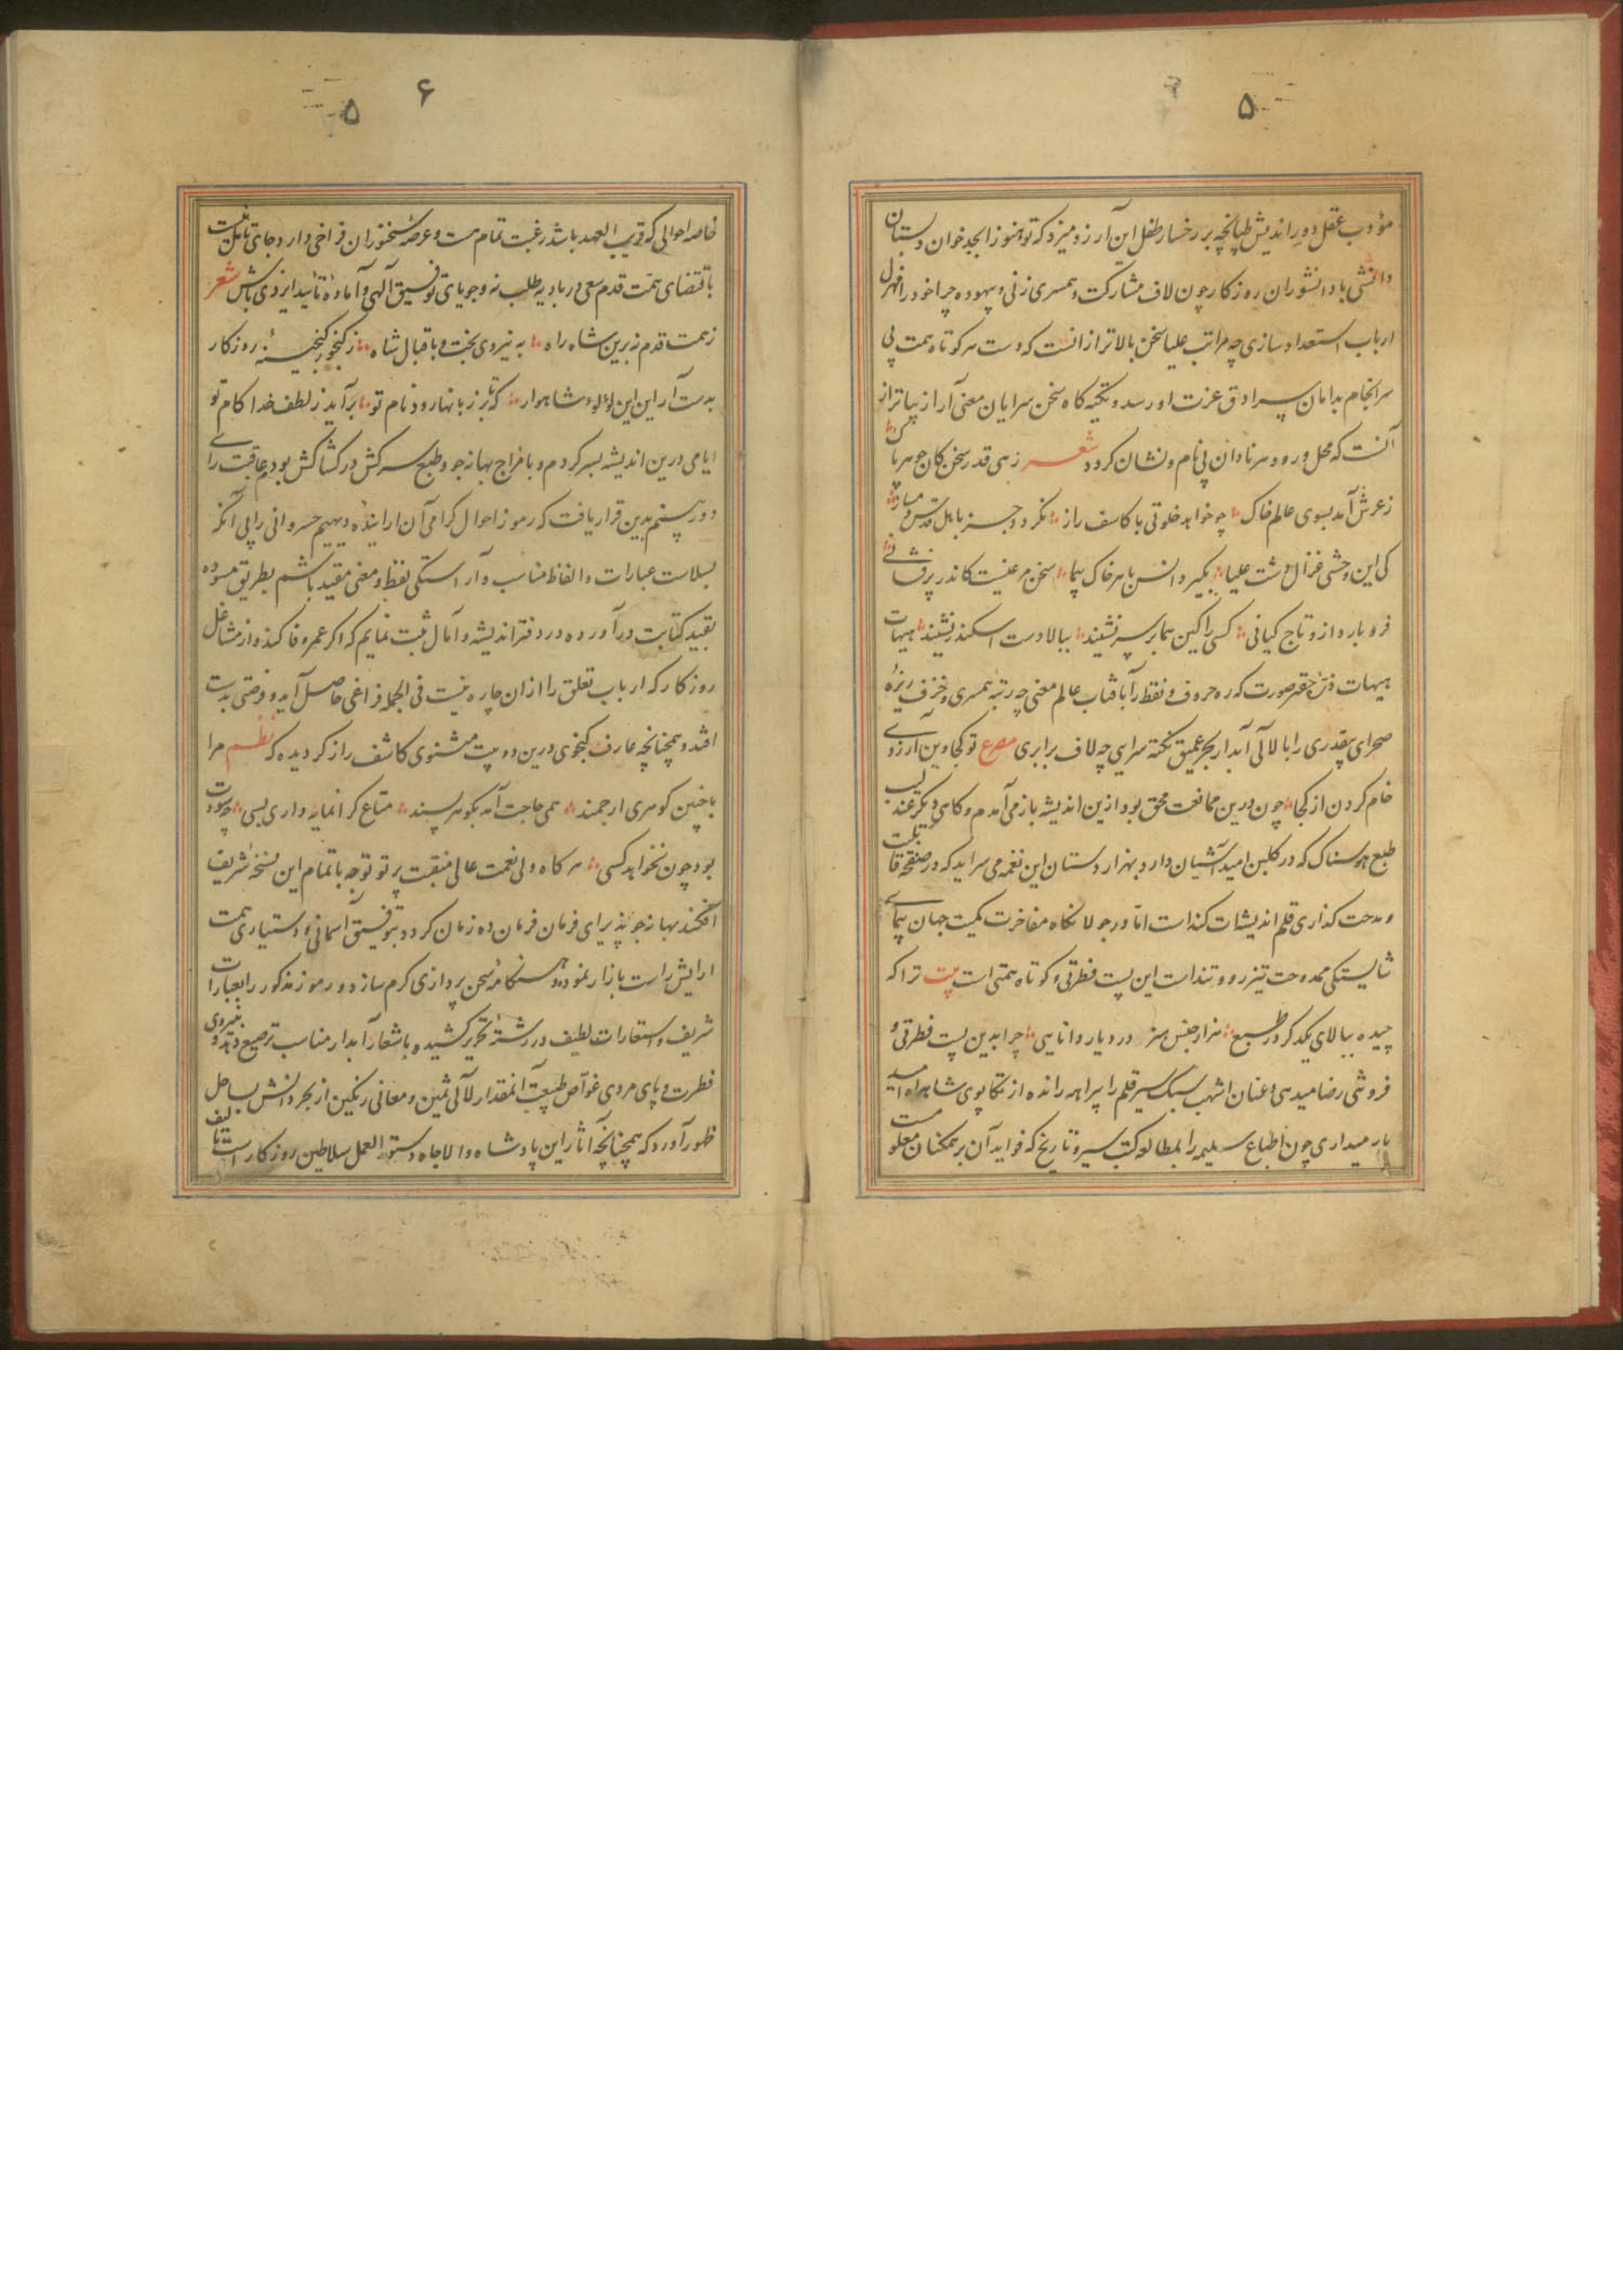 ۵
مؤدب عقل دور اندیش طپانچه بر رخسار طفل این آرزو میزد که تو هنوز ابجد خوان دبستان
دانشی با دانشوران روزکار چون لاف مشارکت و همسری زنی و بیهوده چرا خود را
ارباب استعداد سازی چه مراتب علیا سخن بالاتر از انست که دست هر کوتاه همت بی
سرانجام بدامان سرادق عزت او رسد و تکیه کاه سخن سرایان معنی آرا از
آنست که محل ورود هر نادان بی نام و نشان کردد شعر زهی قدر سخن کان جوهر پاک
ز عرش آمد بسوی عالم خاک چو خواهد خلوتی با کاشف راز نکردد جز باهل قدس
کی این وحشی غزال دشت علیا بکیرد انس با هر خاک پیما سخن مرغیست کاندر پرفشانی
فرو بارد ازو تاج کیانی کسی را کین هما بر سر نشیند ببالا دست اسکندر نشیند هیهات
هیهات ذره حقیر صورت که ره حروف و نقط را با فتاب عالم معنی چه رتبه همسری و خزف ریزهٔ
صحرای بیقدری را با لآلی آبدار بحر عمیق نکته سرایی چه لاف برابری مصرع تو کجا وین آرزوی
خام کردن از کجا چون درین ممانعت محق بود ازین اندیشه باز می آمدم و کاهی دیکر عندلیب
طبع هوسناک که در کلبن امید آشیان دارد بهزار دستان این نغمه می سراید که در صفحه قابلیت
و مدحت کذاری قلم اندیشه‌ات کند است اما در جولانکاه مفاخرت کمیت جهان پیمای
شایستکی ممدوحت تیزرو و تند است این پست فطرتی و کوتاه همتی است بیت ترا که
چیده ببالای یکدکر در طبع هزار جنس هنر در دیار دانایی چرا بدین پست فطرتی و
فروشی رضا میدهی و عنان اشهب سبک سیر قلم را پیراهه رانده از تکاپوی شاهراه امید
باز میداری چون طباع سلیمه را بمطالعه کتب سیر و تاریخ که فواید آن بر همکنان معلومست
۶
۵
خاصه احوالی که قریب العهد باشد رغبت تمام هست و عرصهٔ سخنوران فراخی دارد و جای تامل نیست
باقتضای همت قدم سعی در بادیه طلب نه و جویای توفیق الهی و آماده تأیید ایزدی باش شعر
ز همت قدم نه برین شاه راه به نیروی بخت و باقبال شاه ز کنجور کنجینهٔ روزکار
بدست آر این لؤلوء شاهوار که بر زبانها رود نام تو برآید ز لطف خدا کام تو
ایامی درین اندیشه بسر کردم و با مزاج بهانه جو و طبع سرکش در کشاکش بودم عاقبت رای
دوربینم بدین قرار یافت که رموز احوال کرامی آن ارایندهٔ دیهیم خسروانی را بی آنکه
بسلاست عبارات و الفاظ مناسب و آراستکی لفظ و معنی مقید باشم بطریق مسوده
بقید کتابت درآورده در دفتر اندیشه و آمال ثبت نمایم که اکر عمر وفا کند و از مشاغل
روزکار که ارباب تعلق را ازان چاره نیست فی الجمله فراغی حاصل آید و فرصتی بدست
افتد و همچنانچه عارف کنجوی درین دو بیت مثنوی کاشف راز کردیده که نظم مرا
با چنین کوهری ارجمند همی حاجت آمد بکوهر پسند متاع کرانمایه داری بسی چه سود
بود چون نخواهد کسی هر کاه ولی نعمت عالی منقبت پرتو توجه باتمام این نسخهٔ شریف
افکند بهانه جو پذیرای فرمان فرمان ده زمان کردد بتوفیق آسمانی و دستیاری همت
ارایش راست بازار نموده و هنکامهٔ سخن پردازی کرم سازد و رموز مذکور را بعبارات
شریف و استعارات لطیف در رشتهٔ تحریر کشیده باشعار آبدار مناسب ترصیع دهد و بنیروی
فطرت و پای مردی غواص طبیعت آنمقدار لآلی ثمین و معانی رنکین از بحر دانش بساحل
ظهور آورد که همچنانچه آثار این پادشاه والا جاه دستور العمل سلاطین روزکار است تألیف